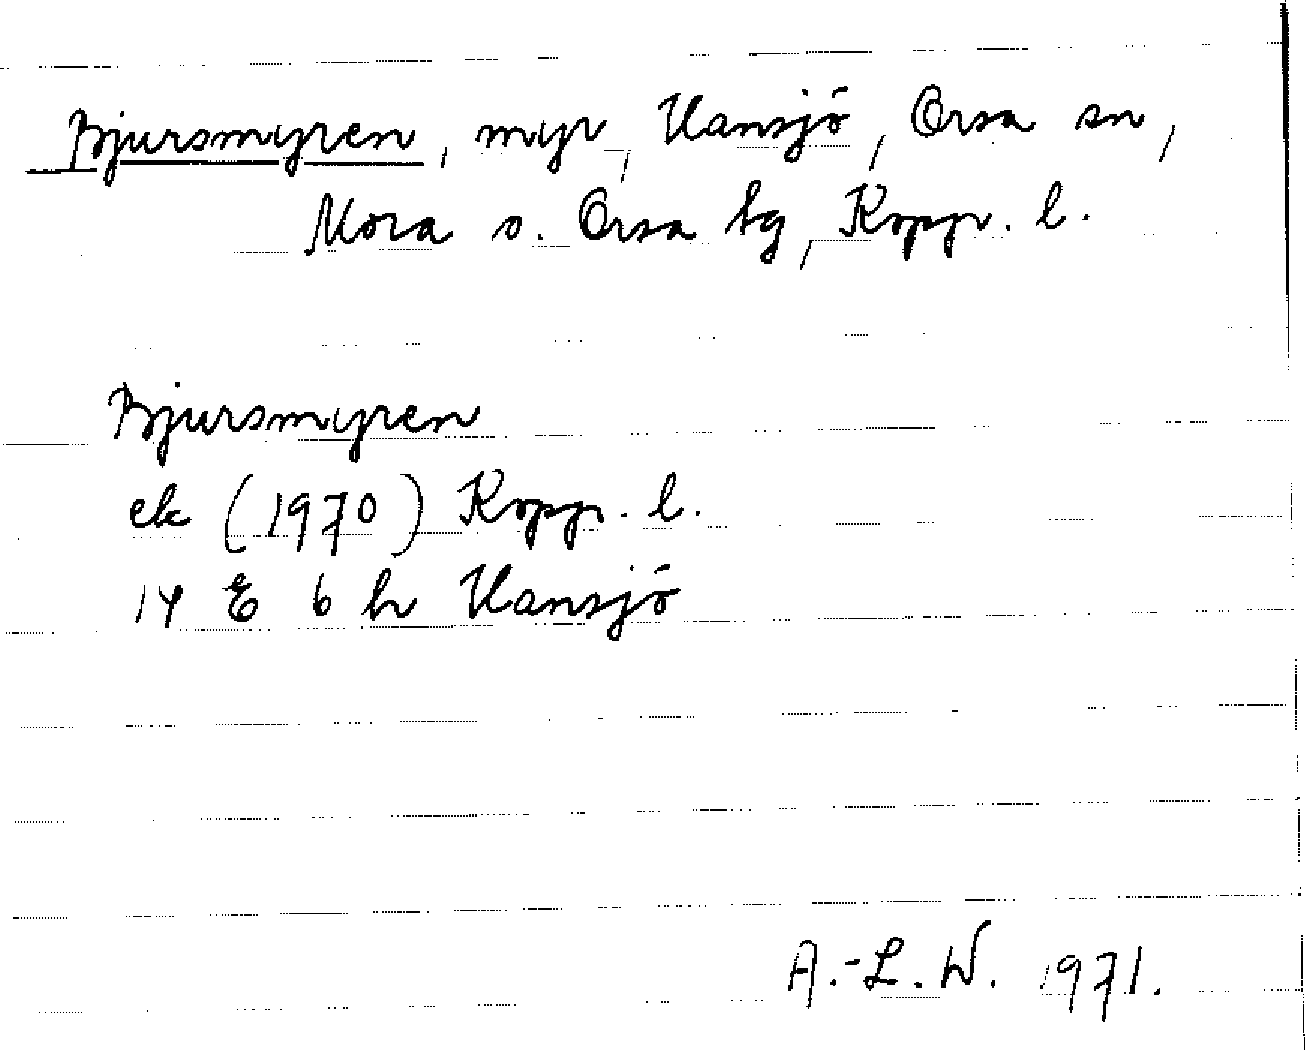 Bjursmyren, myr, Hansjö, Orsa sn,
Mora o. Orsa tg, Kopp. l.
Bjursmyren
ek (1970) Kopp. l.
14 E 6 h Hansjö
A.-L. W. 1971.